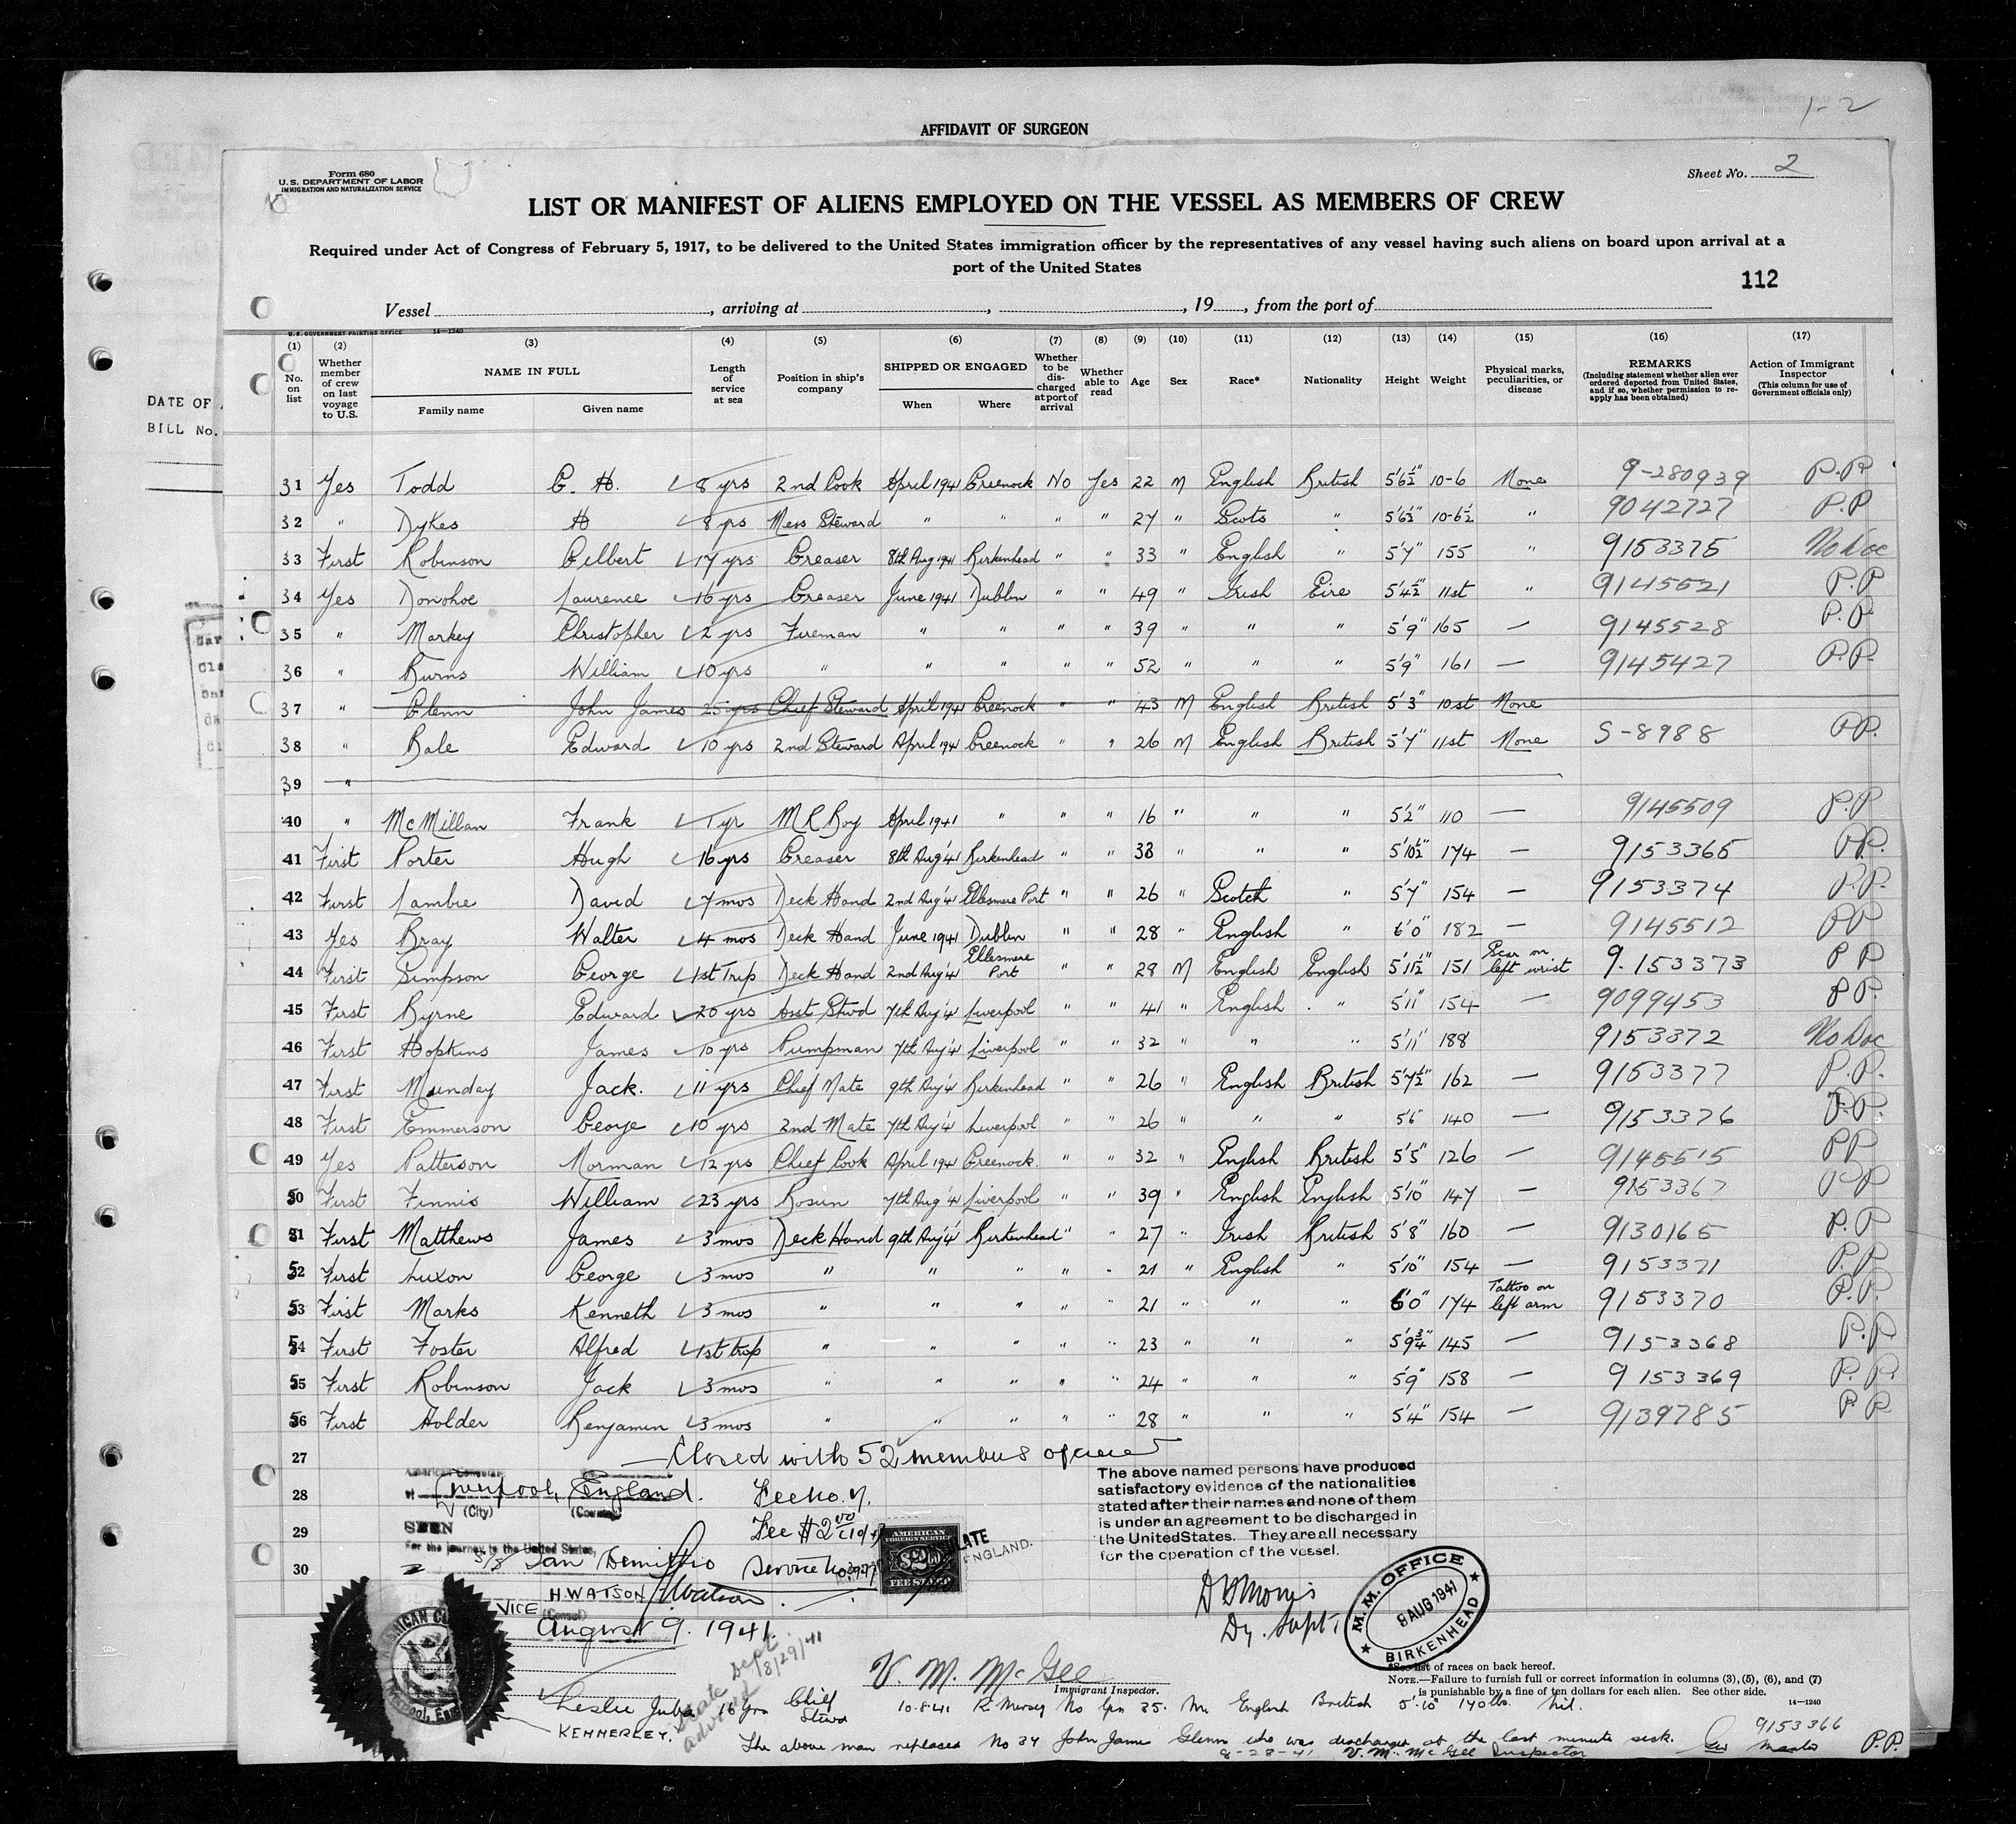 1-2
AFFIDAVIT OF SURGEON
Form 680
U.S. DEPARTMENT OF LABOR
IMMIGRATION AND NATURALIZATION SERVICE
Sheet No. 2
LIST OR MANIFEST OF ALIENS EMPLOYED ON THE VESSEL AS MEMBERS OF CREW
Required under Act of Congress of February 5, 1917, to be delivered to the United States immigration officer by the representatives of any vessel having such aliens on board upon arrival at a
port of the United States
112
Vessel , arriving at , , 19 , from the port of
U.S. GOVERNMENT PRINTING OFFICE 14—1240
(1) (2) (3) (4) (5) (6) (7) (8) (9) (10) (11) (12) (13) (14) (15) (16) (17)
No. on list
Whether member of crew on last voyage to U.S.
NAME IN FULL
Family name Given name
Length of service at sea
Position in ship's company
SHIPPED OR ENGAGED
When Where
Whether to be discharged at port of arrival
Whether able to read
Age
Sex
Race*
Nationality
Height
Weight
Physical marks, peculiarities, or disease
REMARKS
(Including statement whether alien ever ordered deported from United States, and if so, whether permission to reapply has been obtained)
Action of Immigrant Inspector
(This column for use of Government officials only)
DATE OF
BILL No.
31 Yes Todd G. H. 8 yrs 2nd Cook April 1941 Greenock No Yes 22 M English British 5'6½" 10-6 None 9-280939 P.P.
32 " Dykes H 8 yrs Mess Steward " " " " 27 " Scots " 5'6½" 10-6½ " 9042727 P.P
33 First Robinson Gilbert 17 yrs Greaser 8th Aug 1941 Birkenhead " " 33 " English " 5'7" 155 " 9153375 No Doc
34 Yes Donohoe Laurence 16 yrs Greaser June 1941 Dublin " " 49 " Irish Eire 5'4½" 11st " 9145521 P.P
35 " Markey Christopher 2 yrs Fireman " " " " 39 " " " 5'9" 165 — 9145528 P.P.
36 " Burns William 10 yrs " " " " " 52 " " " 5'9" 161 — 9145427 P.P.
37 " Glenn John James 25 yrs Chief Steward April 1941 Greenock " " 43 M English British 5'3" 10st None
38 " Bale Edward 10 yrs 2nd Steward April 1941 Greenock " " 26 M English British 5'7" 11st None S-8988 P.P.
39 "
40 " McMillan Frank 1 yr M R Boy April 1941 " " " 16 " " " 5'2" 110 — 9145509 P.P
41 First Porter Hugh 16 yrs Greaser 8th Aug '41 Birkenhead " " 38 " " " 5'10½" 174 — 9153365 P.P.
42 First Lambie David 7 mos Deck Hand 2nd Aug '41 Ellesmere Port " " 26 " Scotch " 5'7" 154 — 9153374 P.P.
43 Yes Bray Walter 4 mos Deck Hand June 1941 Dublin " " 28 " English " 6'0" 182 — 9145512 PP
44 First Simpson George 1st Trip Deck Hand 2nd Aug '41 Ellesmere Port " " 28 M English English 5'11½" 151 Scar on left wrist 9.153373 P P
45 First Byrne Edward 20 yrs Asst Stwd 7th Aug '41 Liverpool " " 41 " English " 5'11" 154 — 9099453 P P.
46 First Hopkins James 10 yrs Pumpman 7th Aug '41 Liverpool " " 32 " " " 5'11" 188 9153372 No Doc
47 First Munday Jack. 11 yrs Chief Mate 9th Aug '41 Birkenhead " " 26 " English British 5'7½" 162 — 9153377 P.P.
48 First Emmerson George 10 yrs 2nd Mate 7th Aug '41 Liverpool " 26 " " " 5'6" 140 — 9153376 P.P.
49 Yes Patterson Norman 12 yrs Chief Cook April 1941 Greenock " " 32 " English British 5'5" 126 — 9145515 PP
50 First Finnis William 23 yrs Bosun 7th Aug '41 Liverpool " " 39 " English English 5'10" 147 — 9153367 PP
51 First Matthews James 3 mos Deck Hand 9th Aug '41 Birkenhead " " 27 " Irish British 5'8" 160 — 9130165 P.P
52 First Luxon George 3 mos " " " " " 21 " English " 5'10" 154 — 9153371 P.P.
53 First Marks Kenneth 3 mos " " " " " 21 " " " 6'0" 174 Tattoo on left arm 9153370 P.P.
54 First Foster Alfred 1st trip " " " " " 23 " " " 5'9¾" 145 — 9153368 P.P.
55 First Robinson Jack 3 mos " " " " " 24 " " " 5'9" 158 — 9153369 P.P.
56 First Holder Benjamin 3 mos " " " " " 28 " " " 5'4" 154 — 9139785 P.P.
27 Closed with 52 members of crew
American Consulate
28 at Liverpool, England. Fee No. 7.
(City) (Country)
SEEN
29 Fee $2
For the journey to the United States,
30 S/S San Demitrio Service No. 3927
H. WATSON H. Watson
VICE (Consul)
August 9. 1941.
AMERICAN FOREIGN SERVICE
$2.00
FEE STAMP
ENGLAND.
The above named persons have produced
satisfactory evidence of the nationalities
stated after their names and none of them
is under an agreement to be discharged in
the United States. They are all necessary
for the operation of the vessel.
Dy. Supt.
M. M. OFFICE
9 AUG 1941
BIRKENHEAD
State Dept.
advised
8/29/41
V. M. McGee
Immigrant Inspector.
*See list of races on back hereof.
NOTE.—Failure to furnish full or correct information in columns (3), (5), (6), and (7)
is punishable by a fine of ten dollars for each alien. See other side.
14—1240
Leslie Juba 16 yrs Chief Stwd 10.8.41 R. Mersey No Yes 35. M. English British 5'-10" 140 lbs. Nil.
KEMMERLEY.
9153366
The above man replaced No 37 John James Glenn who was discharged at the last minute sick. Master P.P.
8-28-41 V. M. McGee Inspector